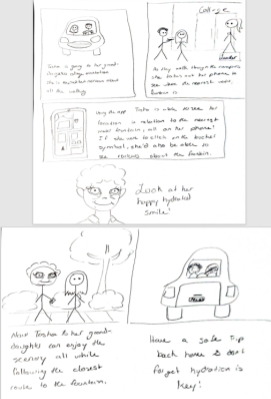 College
Tosha is going to her grand-
daughter's college orientation
She is excited but nervous about
all the walking
As they walk through the campus
she takes out her phone to
see where the nearest water
fountain is
Using the app Tosha is able to see her
location in relation to the nearest
water fountain, all on her phone!
If she were to click on the bucket
symbol, she'd also be able to
see reviews about the fountain.
Look at her
happy hydrated
smile!
Now Tosha & her grand-
daughter can enjoy the
scenery all while
following the closest
route to the fountain.
Have a safe trip
back home & don't
forget hydration is
key!